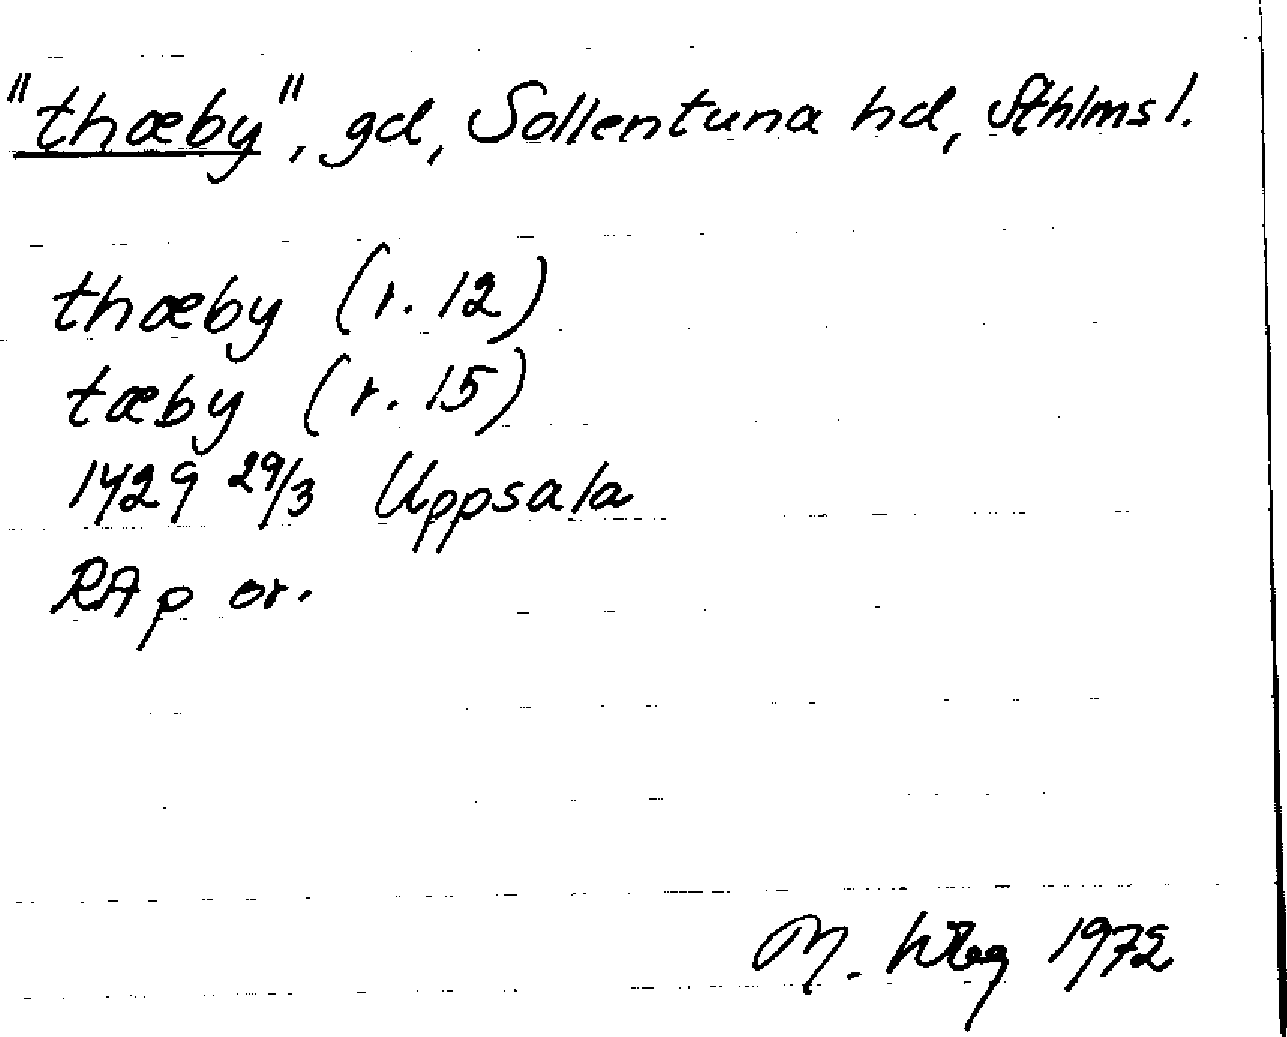 "thæby", gd, Sollentuna hd, Sthlms l.
thæby (r. 12)
tæby (r. 15)
1429 29/3 Uppsala
RAp or.
M. 1972